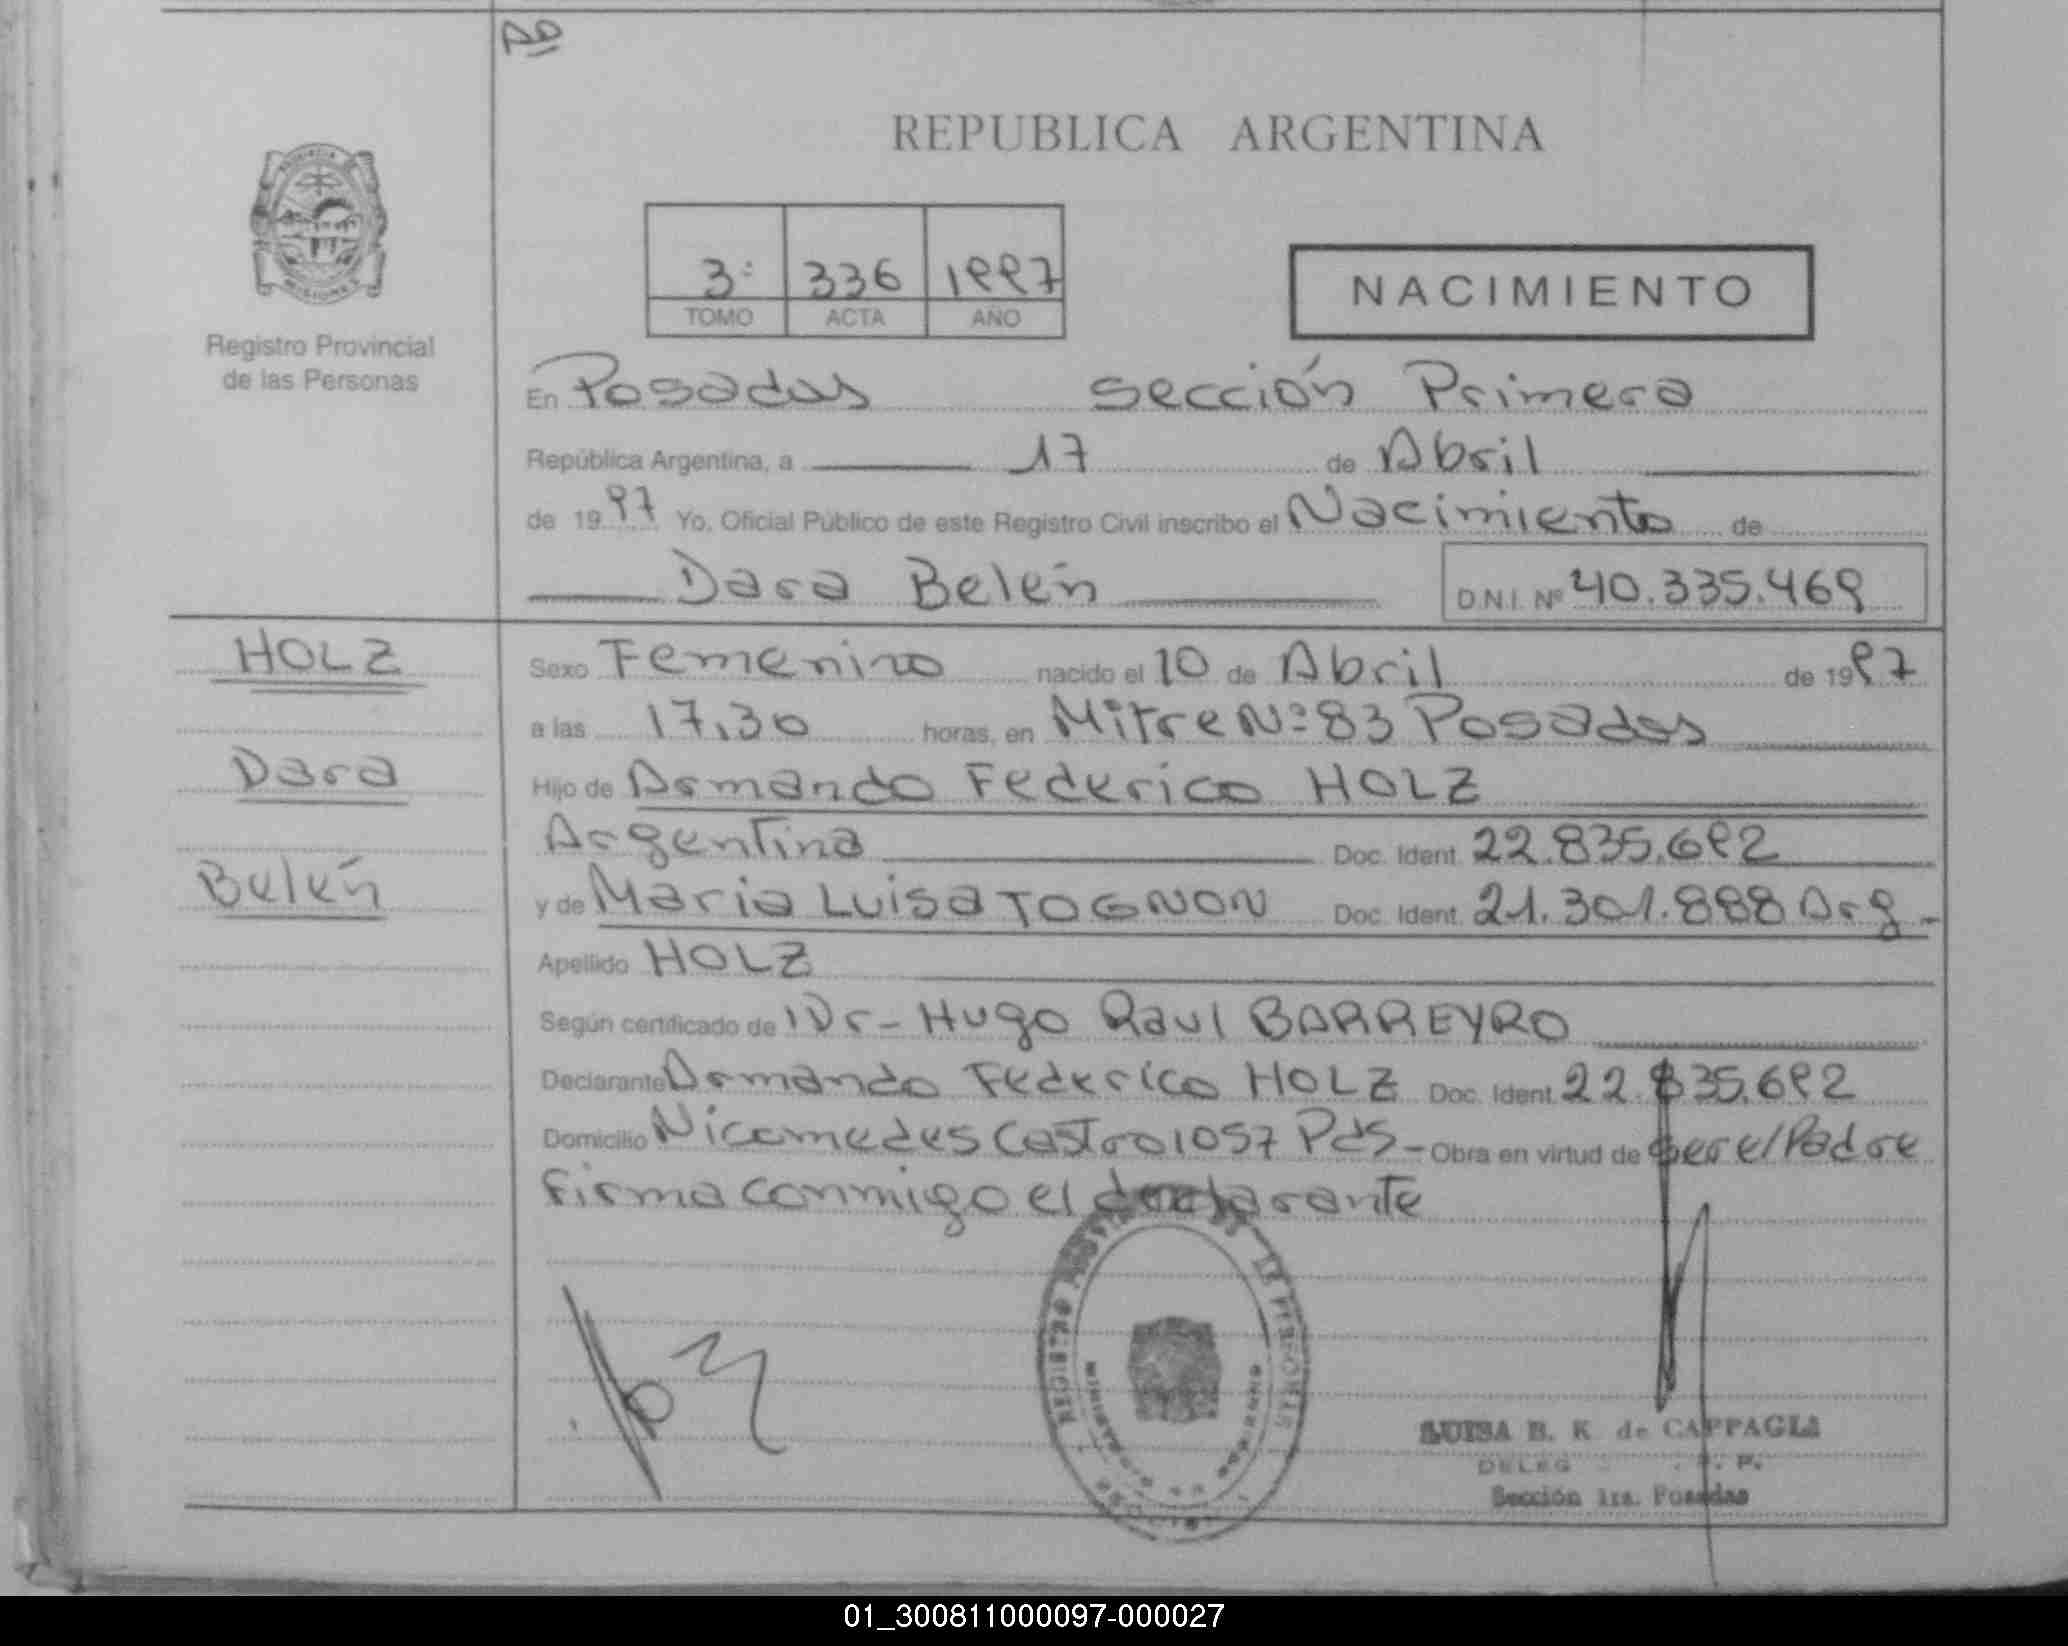 AD
REPUBLICA ARGENTINA
3: 336 1997
TOMO ACTA AÑO
NACIMIENTO
MISIONES
Registro Provincial
de las Personas
En Posadas sección Primera
República Argentina, a 17 de Abril
de 1997 Yo, Oficial Público de este Registro Civil inscribo el Nacimiento de
Dara Belén D.N.I. Nº 40.335.469
HOLZ
Dara
Belén
Sexo Femenino nacido el 10 de Abril de 1997
a las 17,30 horas, en Mitre Nº 83 Posadas
Hijo de Armando Federico HOLZ
Argentina Doc. Ident. 22.835.692
y de Maria Luisa TOGNON Doc. Ident. 21.301.888 Arg -
Apellido HOLZ
Según certificado de Dr- Hugo Raul BARREYRO
Declarante Armando Federico HOLZ Doc. Ident. 22.835.692
Domicilio Nicomedes Castro 1057 Pds- Obra en virtud de ser el Padre
Firma conmigo el declarante
LUISA B. K de CAPPAGLI
DELEG
Sección 1ra. Posadas
01_300811000097-000027